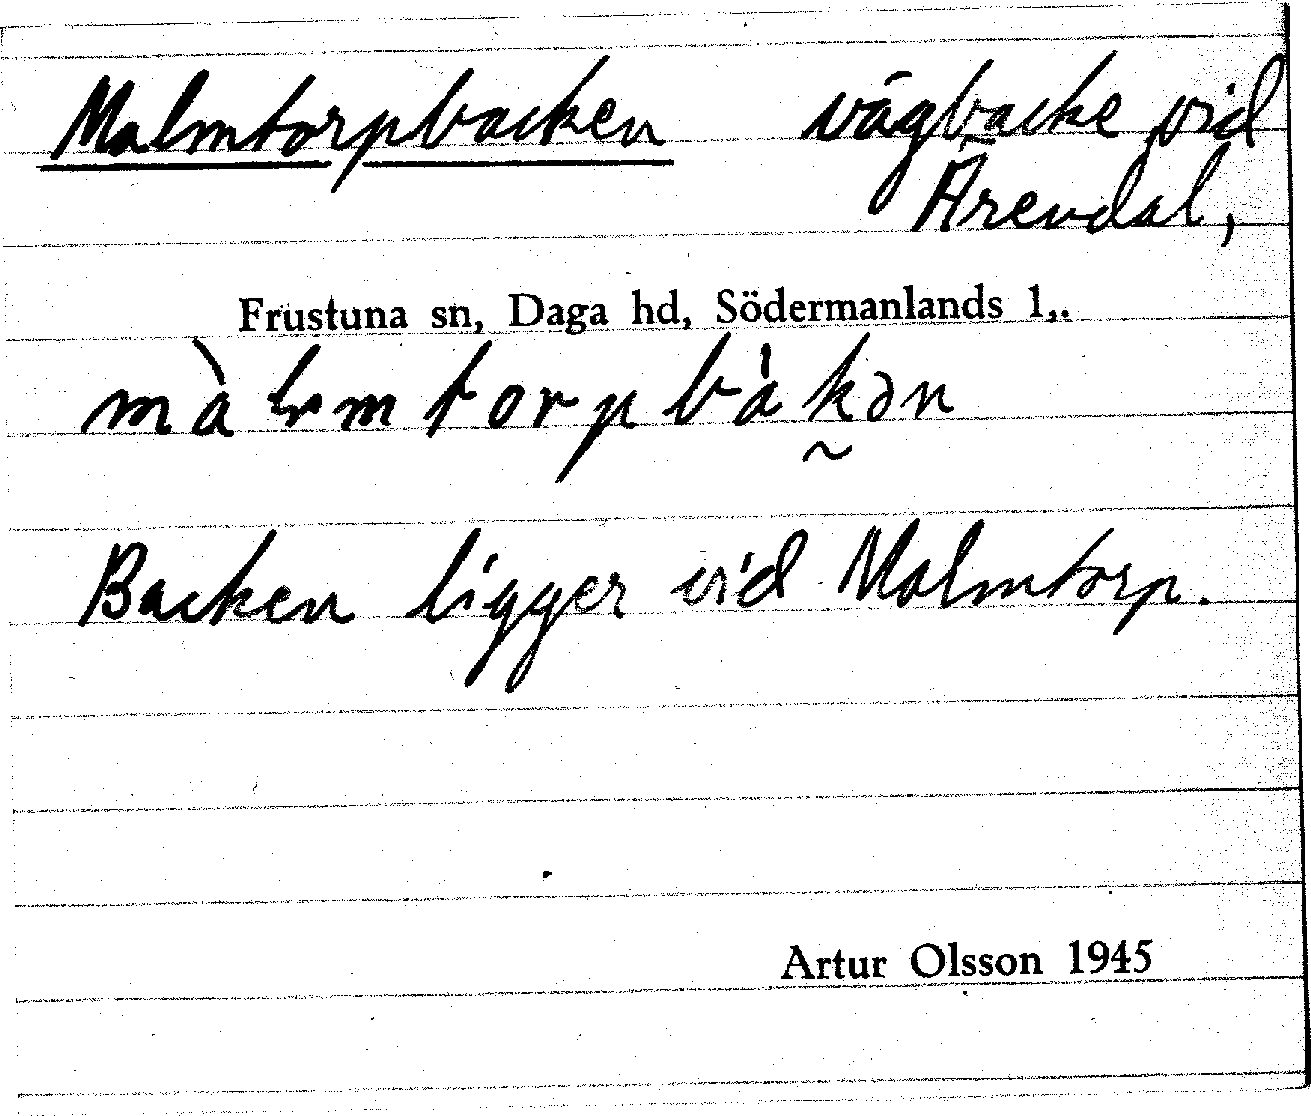 Malmtorpbacken vägbacke vid
Ärendal,
Frustuna sn, Daga hd, Södermanlands l,.
màlmtorpbàkən
Backen ligger vid Malmtorp.
Artur Olsson 1945